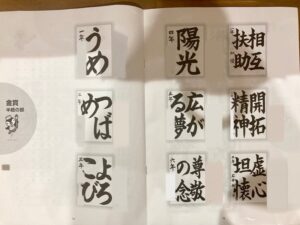 金賞
半紙の部
一年
うめ
つば
め
三年
よろ
こび
四年
陽光
広が
る夢
六年
尊敬
の念
相互
扶助
開拓
精神
虚心
坦懐